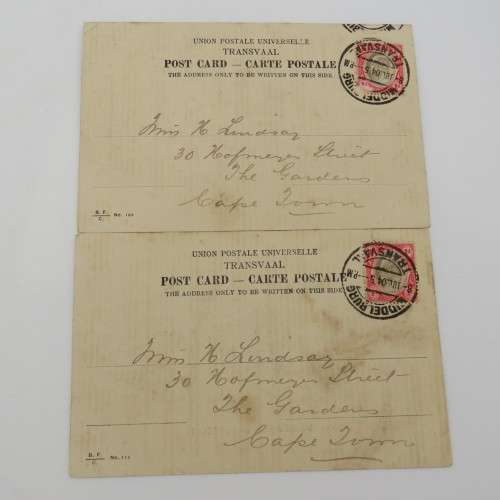 UNION POSTALE UNIVERSELLE
TRANSVAAL
POST CARD — CARTE POSTALE
THE ADDRESS ONLY TO BE WRITTEN ON THIS SIDE.
MIDDELBURG
TRANSVAAL
JUL 04
PM
Miss H Lindsay
30 Hofmeyer Street
The Gardens
Cape Town
B. P.
C. No.
UNION POSTALE UNIVERSELLE
TRANSVAAL
POST CARD — CARTE POSTALE
THE ADDRESS ONLY TO BE WRITTEN ON THIS SIDE.
MIDDELBURG
TRANSVAAL
JUL 04
PM
Miss H Lindsay
30 Hofmeyer Street
The Gardens
Cape Town
B. P.
C. No.